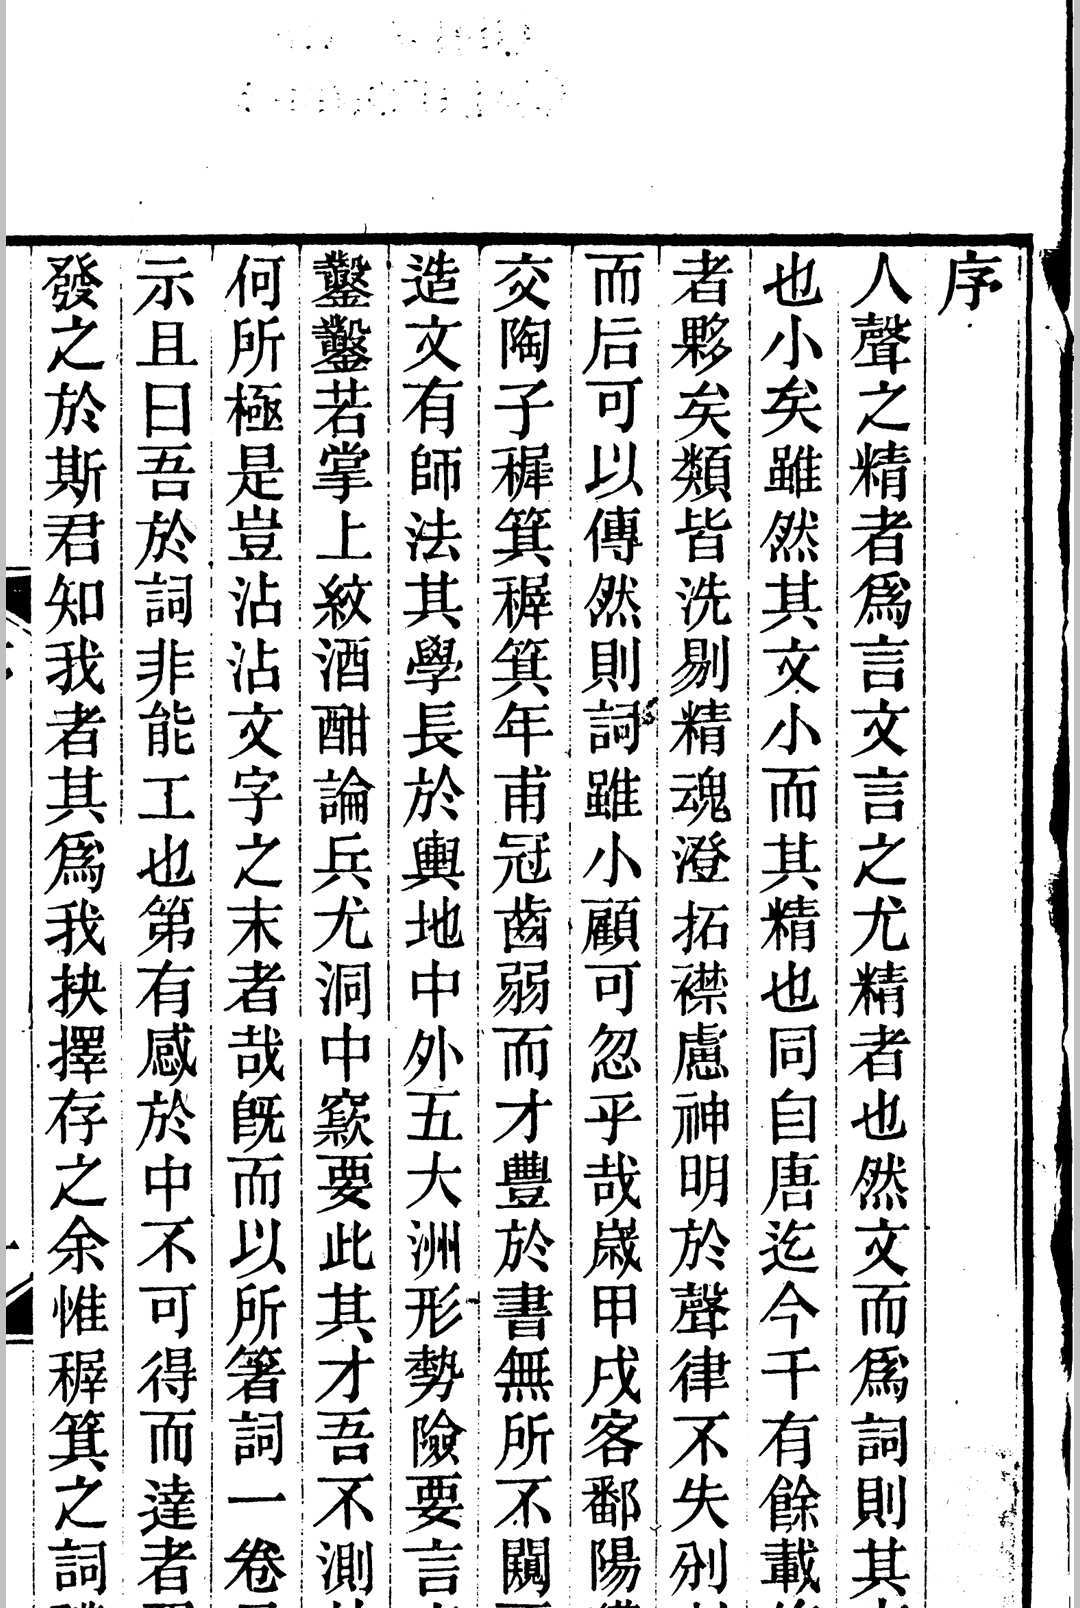 序
人聲之精者爲言文言之尤精者也然文而爲詞則其
也小矣雖然其文小而其精也同自唐迄今千有餘載
者夥矣類皆洗剔精魂澄拓襟慮神明於聲律不失刌
而后可以傳然則詞雖小顧可忽乎哉歲甲戌客鄱陽
交陶子穉箕穉箕年甫冠齒弱而才豐於書無所不闚
造文有師法其學長於輿地中外五大洲形勢險要言
鑿鑿若掌上紋酒酣論兵尤洞中窾要此其才吾不測
何所極是豈沾沾文字之末者哉旣而以所箸詞一卷
示且曰吾於詞非能工也第有感於中不可得而達者
發之於斯君知我者其爲我抉擇存之余惟穉箕之詞